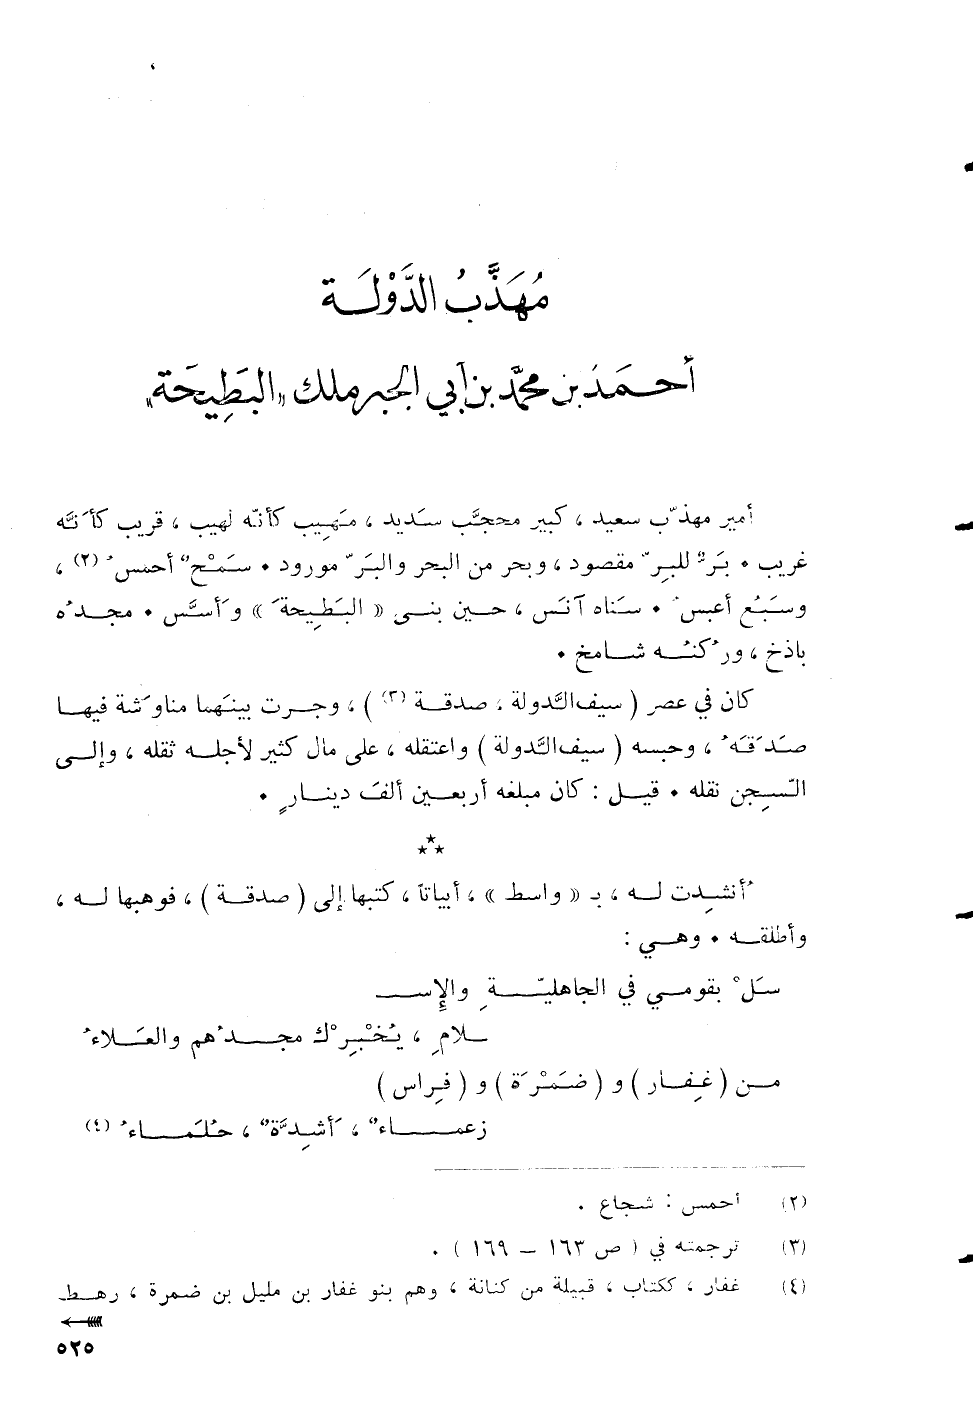 مُهَذَّبُ الدَّوْلَة
أحمَدُ بن محمَّد بن أبي الجبر ملك «البَطِيحَة»
أمير مهذّب سعيد ، كبير محجَّب سَديد ، مَهِيب كأنّه لهيب ، قريب كأَنَّه
غريب • بَرٌّ للبِرّ مقصود ، وبحر من البحر والبَرّ مورود • سَمْحٌ أحمسُ (٢) ،
وسَبُع أعبسُ • سَناه آنَس ، حين بنى « البَطِيحةَ » وأَسَّس • مجدُه
باذخ ، ورُكنُه شامخ •
كان في عصر ( سيف الدَّولة ، صدقة (٣) ) ، وجرت بينَهما مناوَشة فيها
صَدَقَهُ ، وحبسه ( سيف الدَّولة ) واعتقله ، على مال كثير لأجله ثقله ، وإلى
السِّجن نقله • قيل : كان مبلغه أربعين ألفَ دينارٍ •
٭٭٭
أُنشِدت له ، بـ « واسط » ، أبياتاً ، كتبها إلى ( صدقة ) ، فوهبها له ،
وأطلقه • وهي :
سَلْ بقومي في الجاهليّةِ والإِسـ
ـلامِ ، يُخْبِرْكَ مجدُهم والعَلاءُ
من ( غِفار ) و ( ضَمْرَة ) و ( فِراس )
زعماءٌ ، أَشِدَّةٌ ، حُلَماءُ (٤)
(٢) أحمس : شجاع .
(٣) ترجمته في ( ص ١٦٣ – ١٦٩ ) .
(٤) غفار ، ككتاب ، قبيلة من كنانة ، وهم بنو غفار بن مليل بن ضمرة ، رهط
٥٢٥